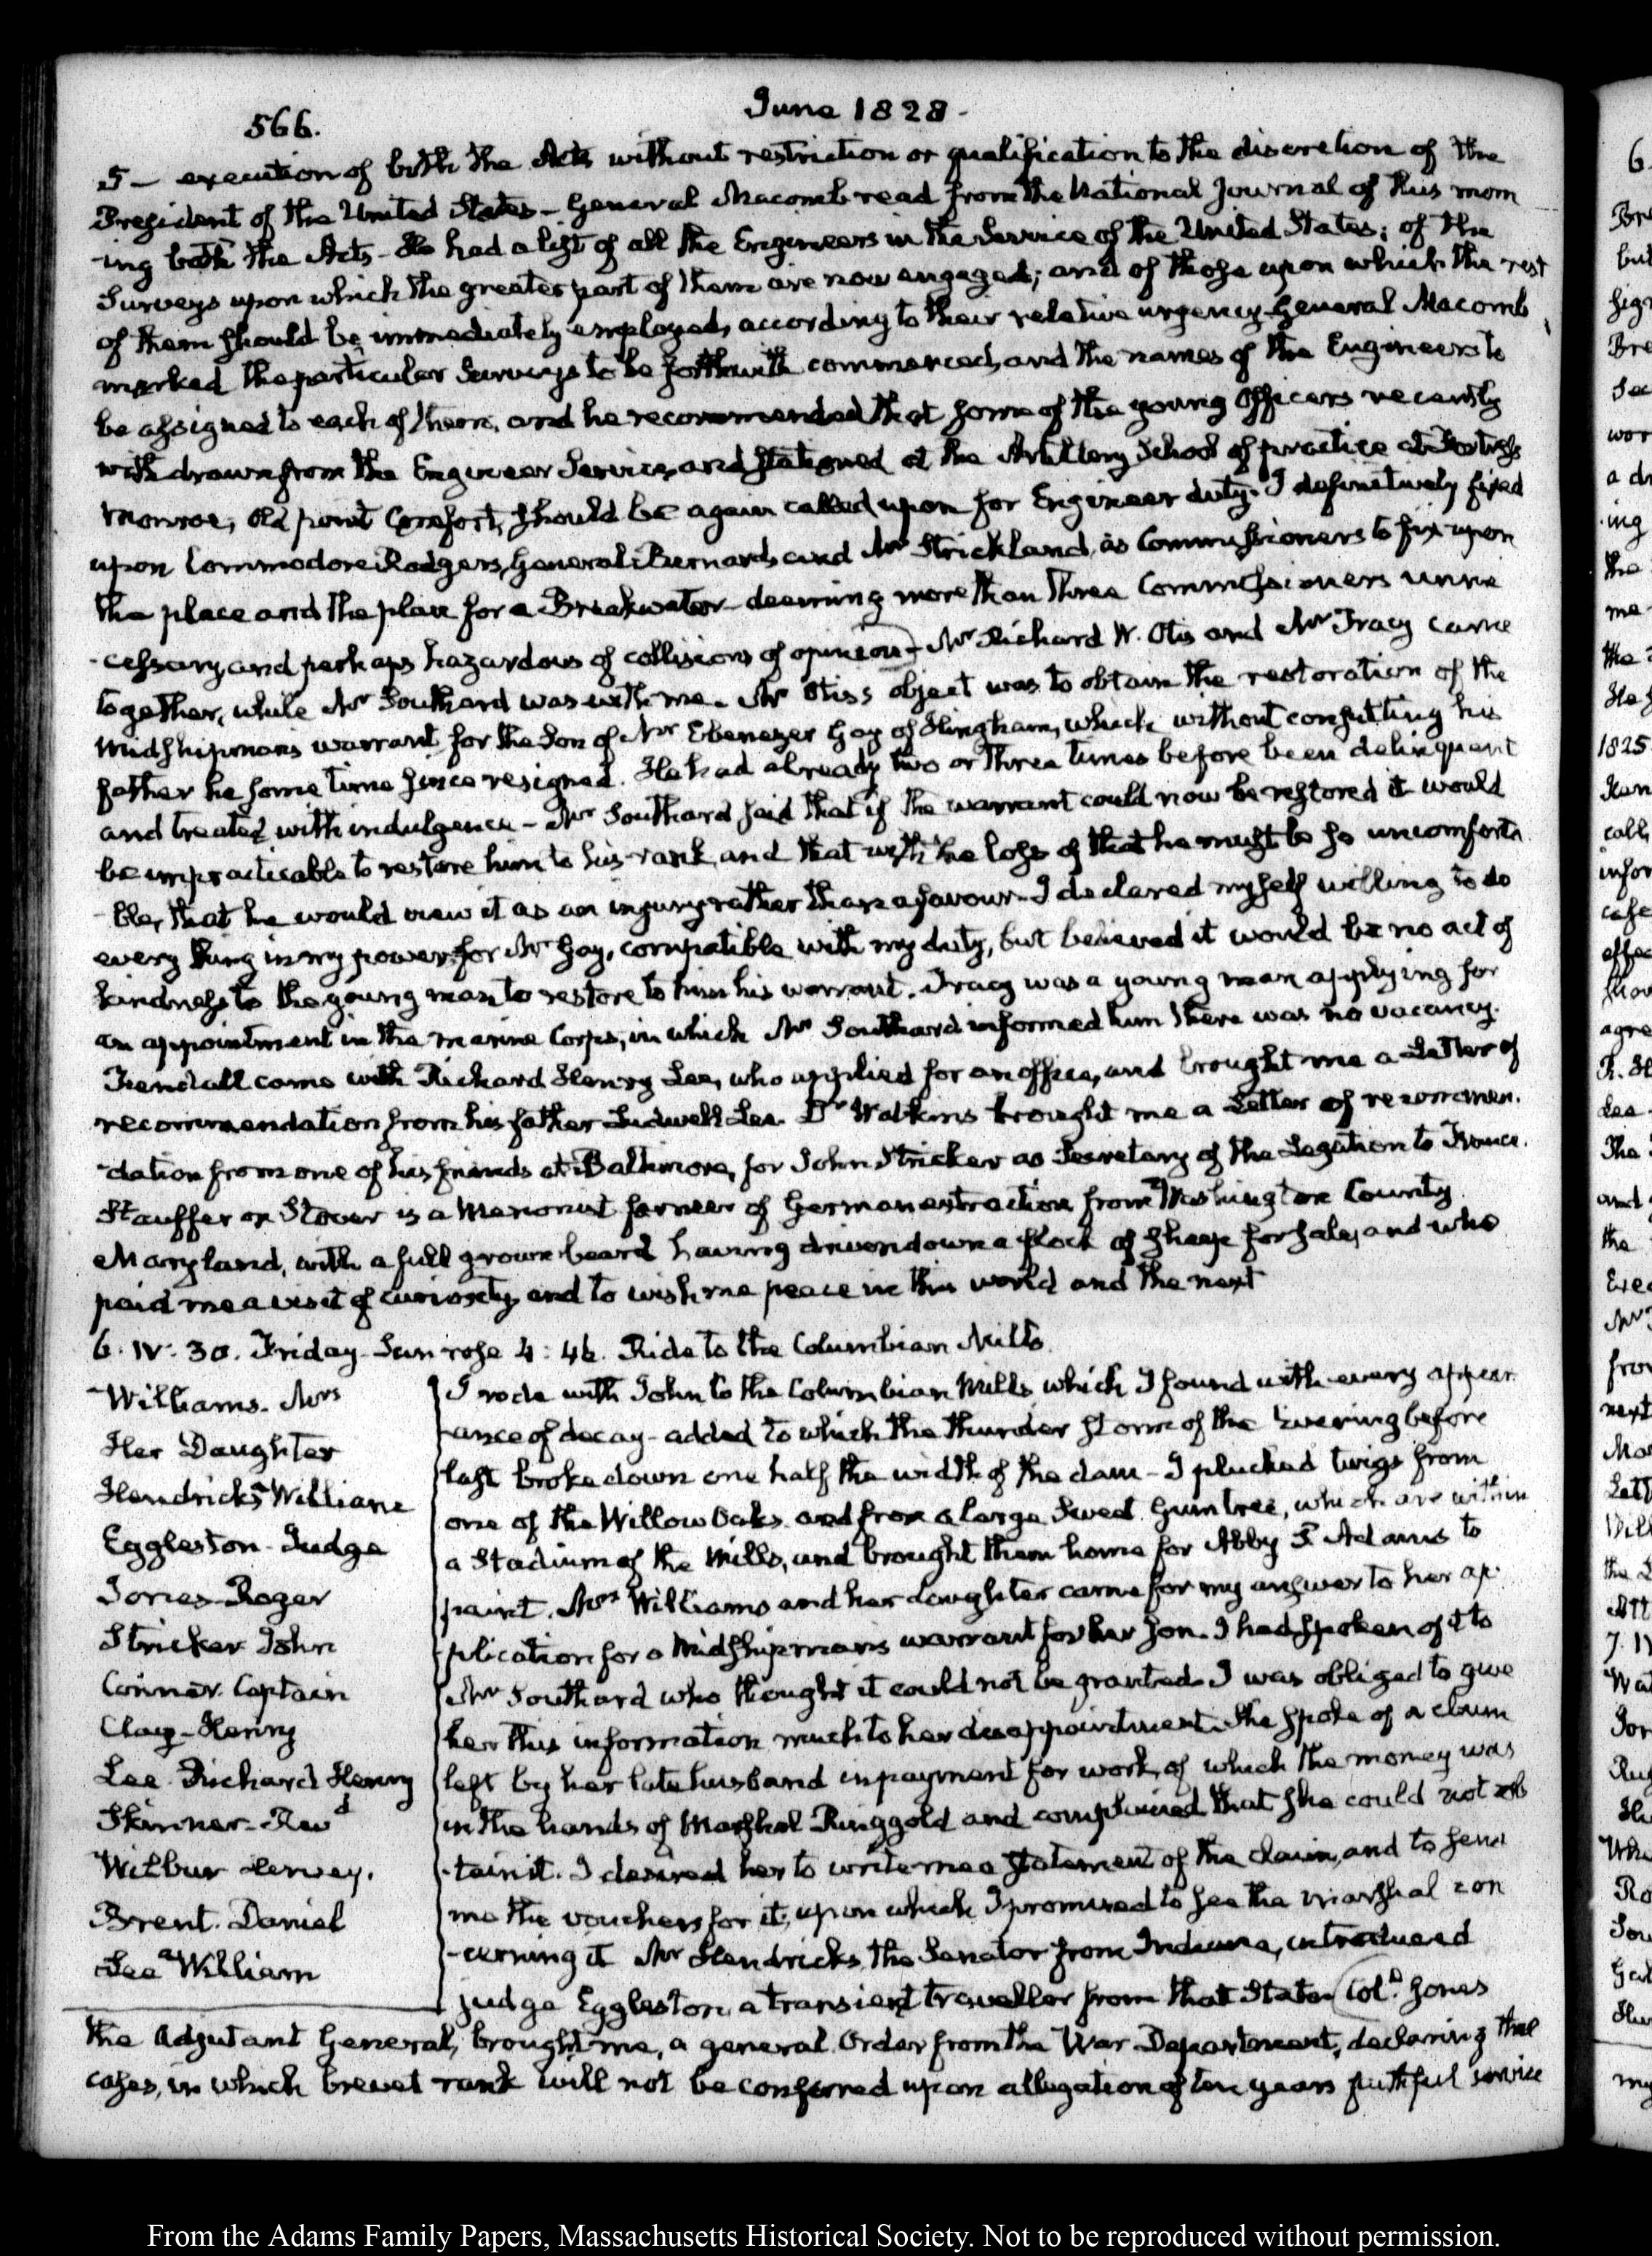 566.
June 1828-
5- execution of both the Acts without restriction or qualification to the discretion of the
President of the United States- General Macomb read from the National Journal of this morn
-ing both the Acts- He had a list of all the Engineers in the Service of the United States; of the
Surveys upon which the greater part of them are now engaged; and of those upon which the rest
of them should be immediately employed, according to their relative urgency. General Macomb
marked the particular Surveys to be forthwith commenced, and the names of the Engineers to
be assigned to each of them, and he recommended that some of the young Officers recently
withdrawn from the Engineer Service, and stationed at the Artillery School of practice at Fortress
Monroe, Old point Comfort, should be again called upon for Engineer duty. I definitively fixed
upon Commodore Rodgers, General Bernard, and Mr Strickland, as Commissioners to fix upon
the place and the plan for a Breakwater- deeming more than three Commissioners unne
-cessary, and perhaps hazardous of collisions of opinion- Mr Richard W. Otis and Mr Tracy came
together, while Mr Southard was with me. Mr Otis's object was to obtain the restoration of the
Midshipman's warrant for the Son of Mr Ebenezer Gay of Hingham, which without consulting his
father he some time since resigned. He had already two or three times before been delinquent
and treated with indulgence- Mr Southard said that if the warrant could now be restored it would
be impracticable to restore him to his rank, and that with the loss of that he must be so uncomforta
-ble, that he would view it as an injury rather than a favour. I declared myself willing to do
every thing in my power for Mr Gay, compatible with my duty, but believed it would be no act of
kindness to the young man to restore to him his warrant. Tracy was a young man applying for
an appointment in the Marine Corps, in which Mr Southard informed him there was no vacancy.
Kendall came with Richard Henry Lee, who applied for an office, and brought me a Letter of
recommendation from his father Ludwell Lee. Dr Watkins brought me a Letter of recommen.
-dation from one of his friends at Baltimore, for John Stricker as Secretary of the Legation to France.
Stauffer or Stover is a Menonist farmer of German extraction from Washington County
Maryland, with a full grown beard having driven down a flock of Sheep for sale, and who
paid me a visit of curiosity, and to wish me peace in this world and the next
6. IV. 30. Friday. Sun rose 4:46. Ride to the Columbian Mills.
Williams. Mrs
Her Daughter
Hendricks William
Eggleston- Judge
Jones- Roger
Stricker John
Conner. Captain
Clay- Henry
Lee. Richard Henry
Skinner- Revd
Wilbur Hervey.
Brent. Daniel
Lee William
I rode with John to the Columbian Mills which I found with every appear
-ance of decay- added to which the thunder storm of the Evening before
last broke down one half the width of the dam- I plucked twigs from
one of the Willow Oaks and from a large Sweet Gum tree, which are within
a Stadium of the Mills, and brought them home for Abby S Adams to
paint. Mrs Williams and her daughter came for my answer to her ap
-plication for a Midshipman's warrant for her Son. I had spoken of it to
Mr Southard who thought it could not be granted. I was obliged to give
her this information much to her disappointment. She spoke of a claim
left by her late husband in payment for work, of which the money was
in the hands of Marshal Ringgold and complained that she could not ob
-tain it. I desired her to write me a statement of the claim, and to send
me the vouchers for it, upon which I promised to see the Marshal con
-cerning it Mr Hendricks, the Senator from Indiana, introduced
Judge Eggleston, a transient traveller from that State. Coll. Jones
the Adjutant General, brought me, a general Order from the War Department, declaring the
cases, in which brevet rank will not be conferred upon allegation of ten years faithful service
From the Adams Family Papers, Massachusetts Historical Society. Not to be reproduced without permission.